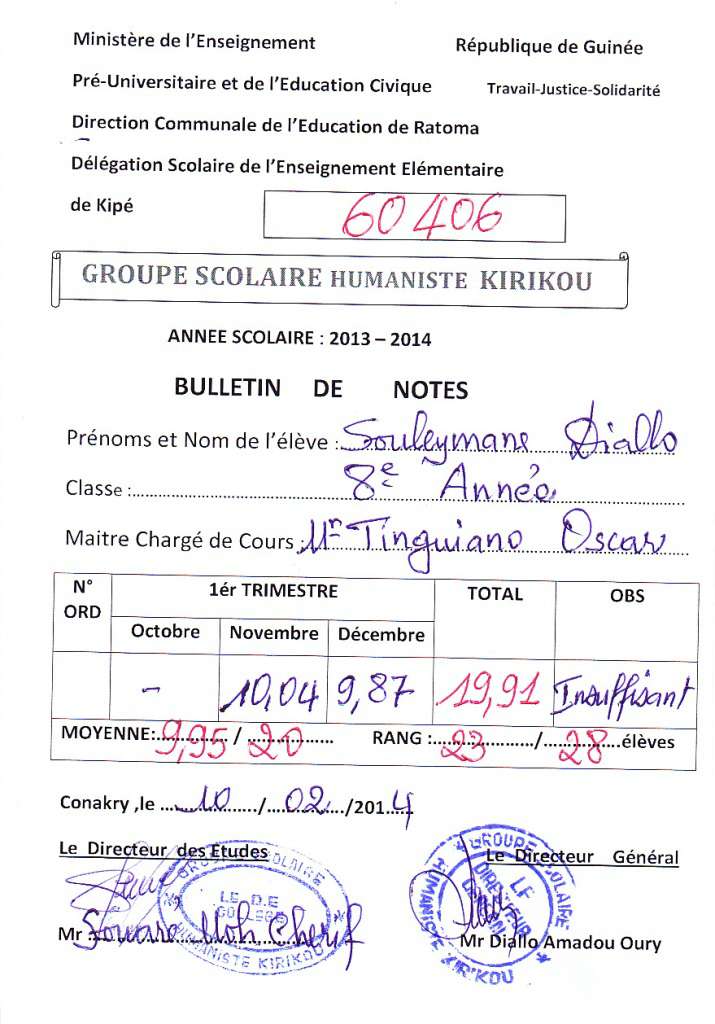 Ministère de l'Enseignement République de Guinée
Pré-Universitaire et de l'Education Civique Travail-Justice-Solidarité
Direction Communale de l'Education de Ratoma
Délégation Scolaire de l'Enseignement Elémentaire
de Kipé 60406
GROUPE SCOLAIRE HUMANISTE KIRIKOU
ANNEE SCOLAIRE : 2013 – 2014
BULLETIN DE NOTES
Prénoms et Nom de l'élève : Souleymane Diallo
Classe : 8e Année
Maitre Chargé de Cours : Mr Tinguiano Oscar
N° ORD 1ér TRIMESTRE TOTAL OBS
Octobre Novembre Décembre
- 10,04 9,87 19,91 Insuffisant
MOYENNE: 9,95 / 20 RANG : 23 / 28 élèves
Conakry ,le 10 / 02 /2014
Le Directeur des Etudes Le Directeur Général
GROUPE SCOLAIRE HUMANISTE KIRIKOU
LE D.E
COLLEGE
GROUPE SCOLAIRE HUMANISTE KIRIKOU
LE DIRECTEUR
Mr Souare Moh Cherif Mr Diallo Amadou Oury